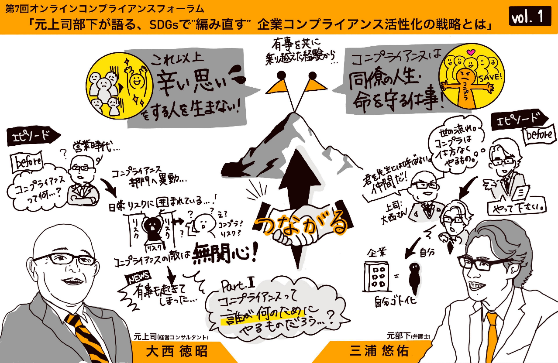 第7回オンラインコンプライアンスフォーラム
「元上司部下が語る、SDGsで"編み直す" 企業コンプライアンス活性化の戦略とは」
vol. 1
これ以上
辛い思い
をする人を生まない!
有事を共に
乗り越えた経験から…
コンプライアンスは
同僚の人生・
命を守る仕事!
SAVE!
エピソード
before
営業時代…
コンプライアンス
って何…?
コンプライアンス
部門へ異動…
日常リスクに囲まれている…!
リスク
リスク
リスク
え?
コンプラ?
リスク?
コンプライアンスの敵は無関心!
NEWS
有事も起きて
しまった…
つながる
Part.1
コンプライアンスって
誰が何のために
やるものだろう…?
エピソード
before
世の流れの
コンプラは
仕方なく
やるもの。
やって下さい。
上司:
大西さん
企業
自分
自分ゴト化
元上司(経営コンサルタント)
大西 徳昭
元部下(弁護士)
三浦 悠佑